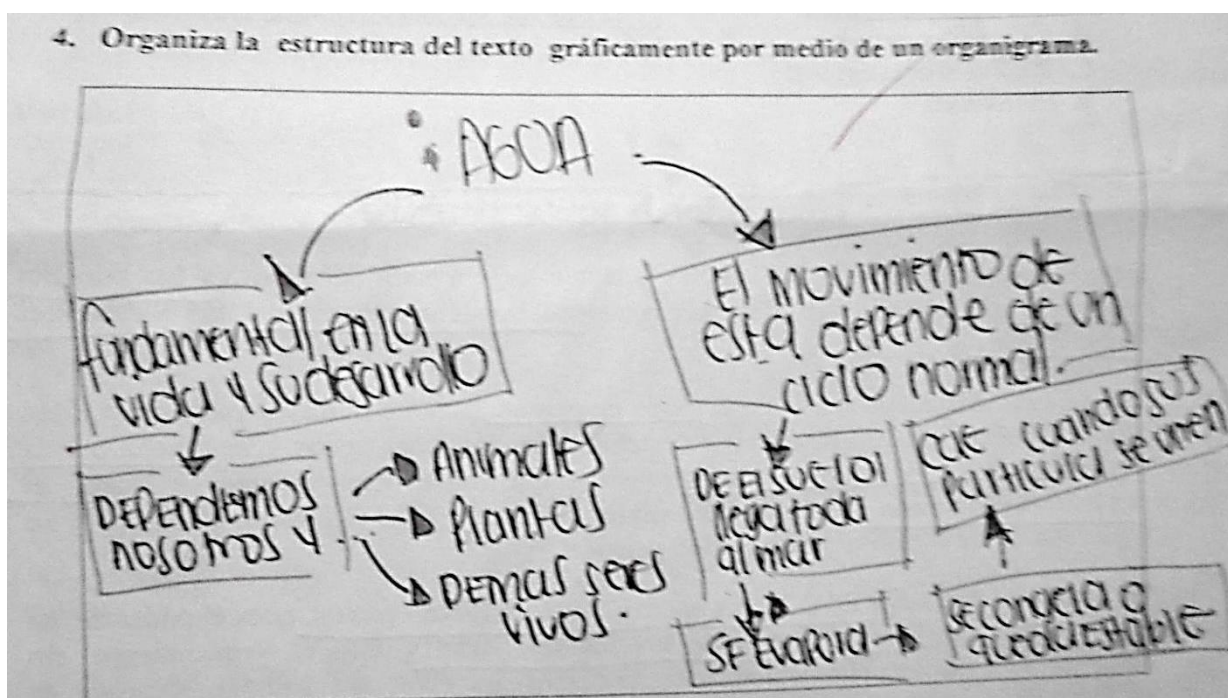 4. Organiza la estructura del texto gráficamente por medio de un organigrama.
AGUA
fundamental en la
vida y su desarrollo
DEPENDEMOS
nosotros y
Animales
Plantas
DEMAS seres
vivos.
El movimiento de
esta depende de un
ciclo normal.
DE El suelo
llega toda
al mar
SE Evapora
se congela o
queda estable
cae cuando sus
particula se unen